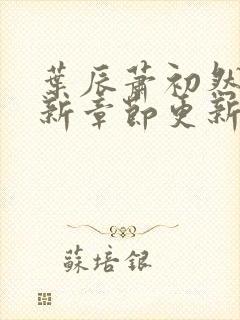 葉辰蕭初然
新章節更新
蘇培銀